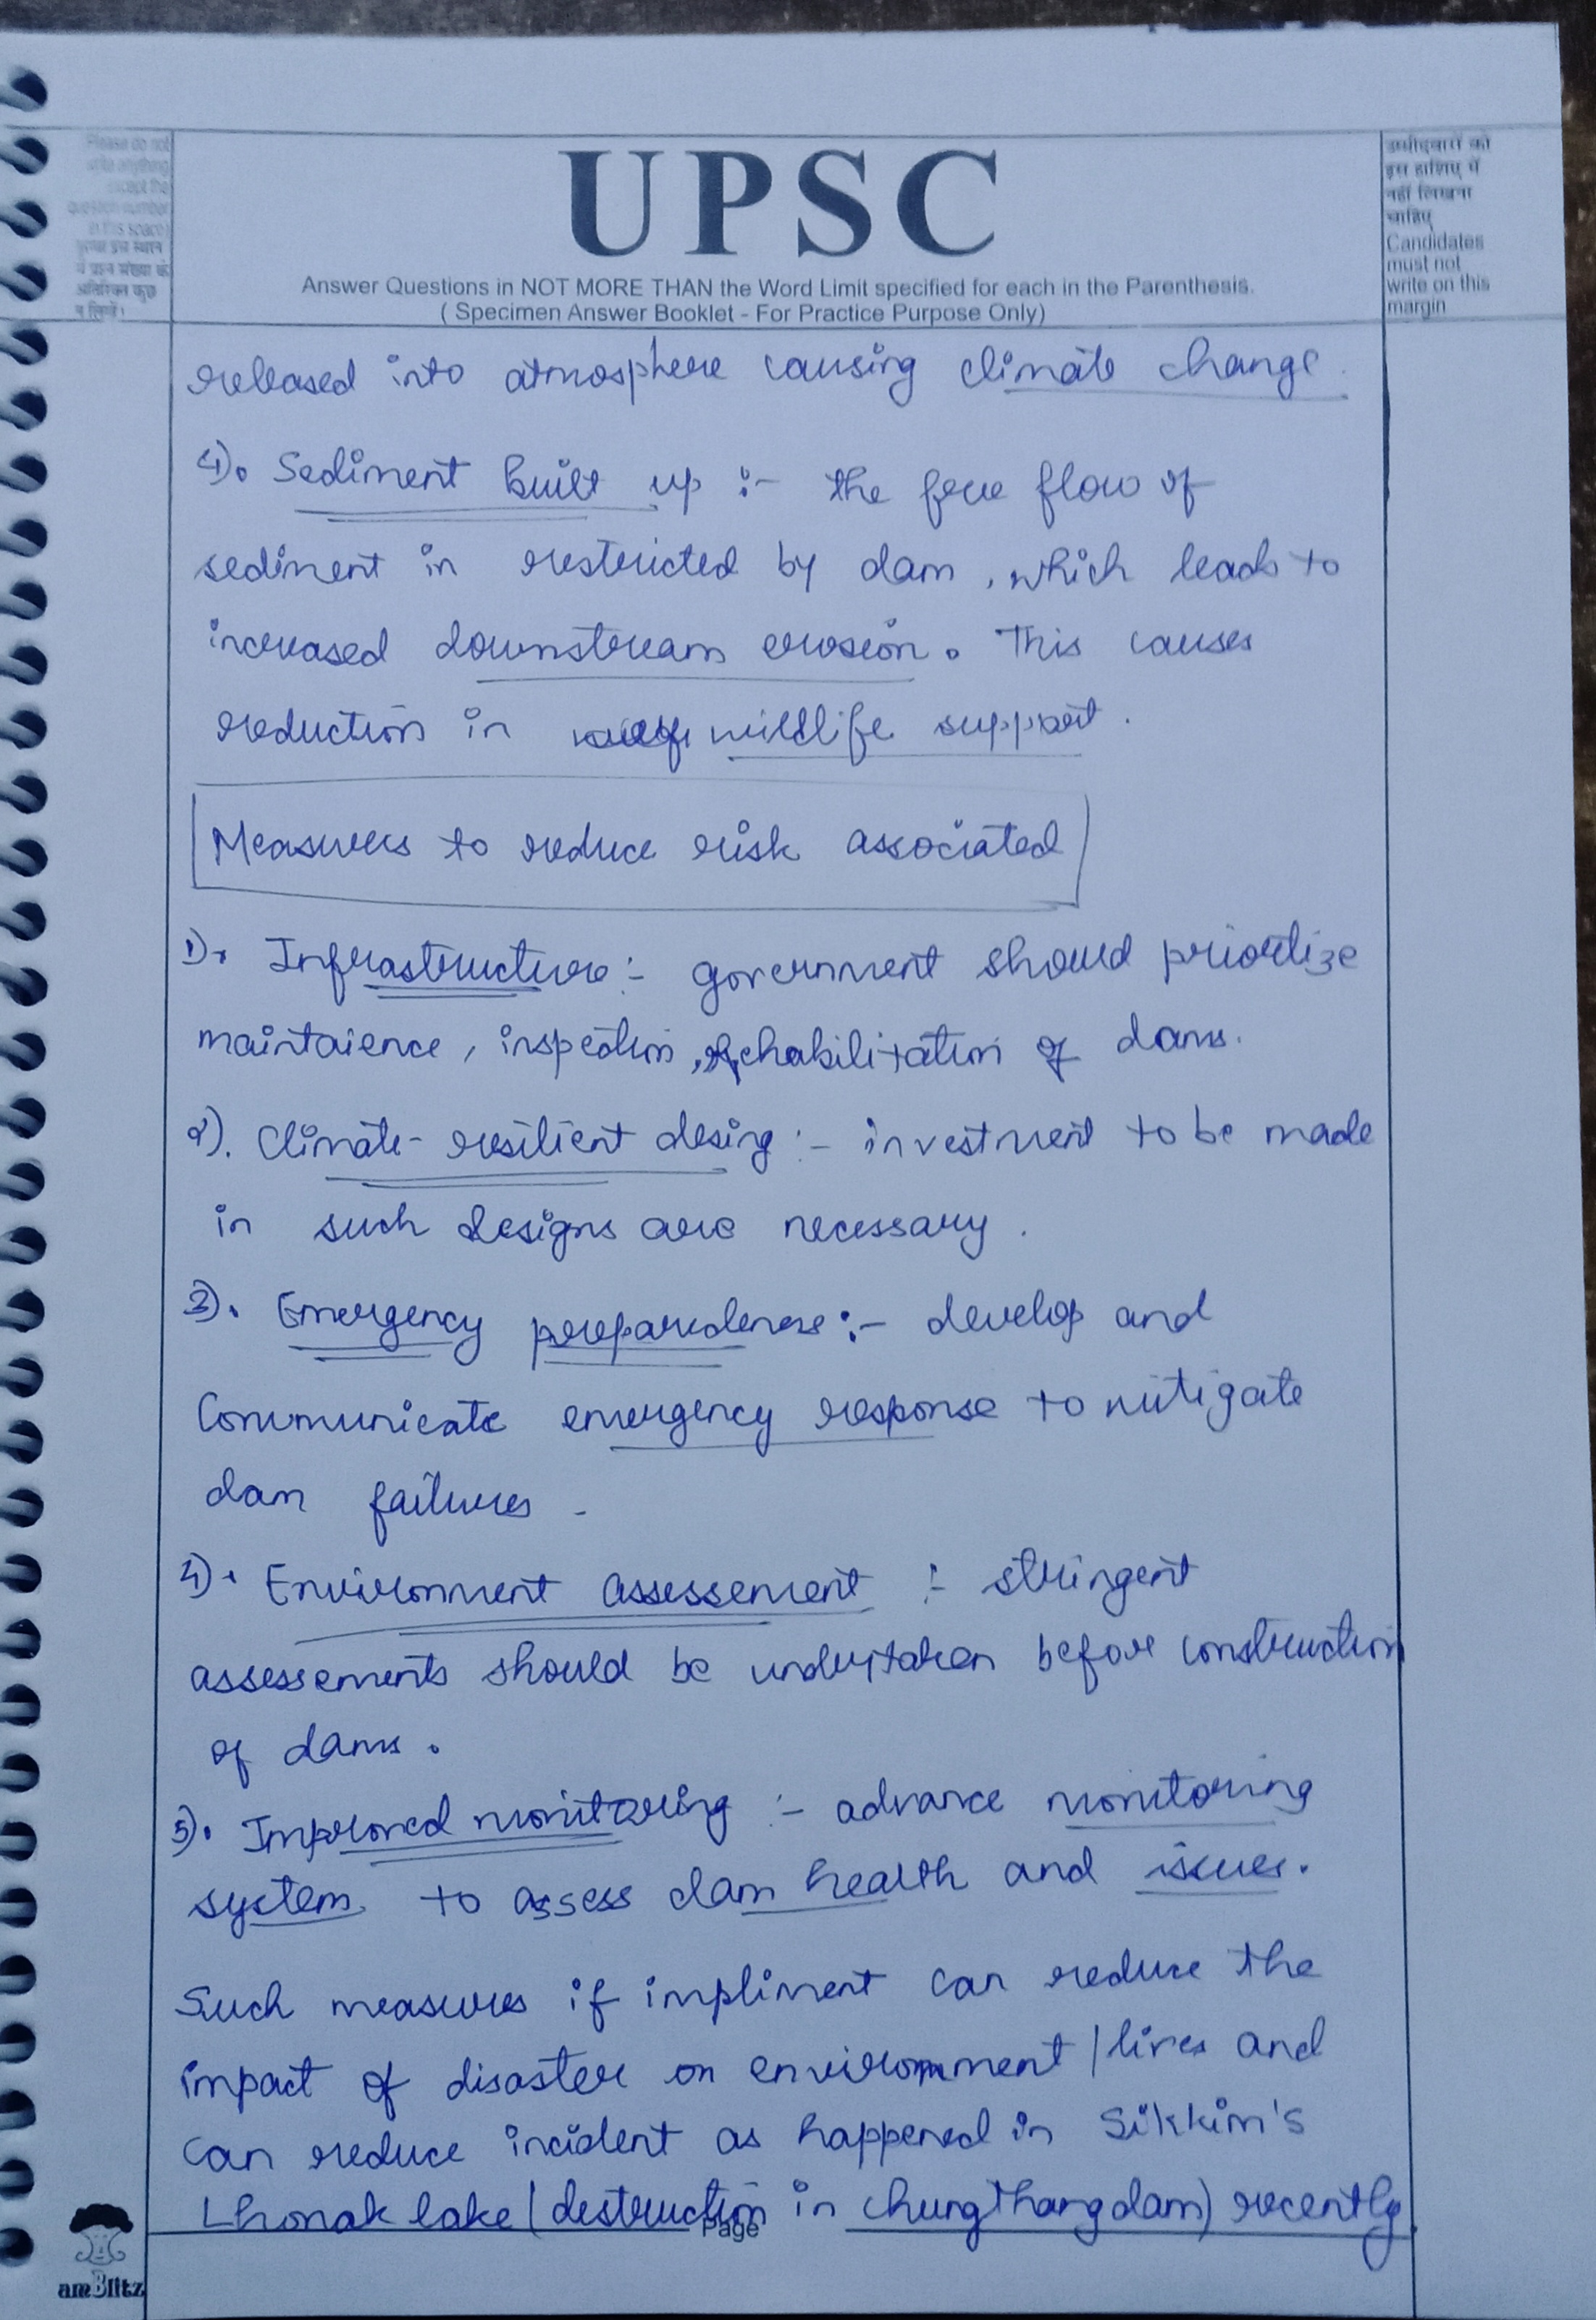 Please do not
write anything
except the
question number
in this space)
UPSC
Answer Questions in NOT MORE THAN the Word Limit specified for each in the Parenthesis.
( Specimen Answer Booklet - For Practice Purpose Only)
उम्मीदवारों को
इस हाशिए में
नहीं लिखना
चाहिए
Candidates
must not
write on this
margin
released into atmosphere causing climate change.
4). Sediment built up :- the free flow of
sediment in restricted by dam, which leads to
increased downstream erosion. This causes
reduction in wildlife support.
Measures to reduce risk associated
1). Infrastructure :- government should prioritize
maintaience, inspection, rehabilitation of dams.
2). Climate-resilient desing :- investment to be made
in such designs are necessary.
3). Emergency preparedeness :- develop and
Communicate emergency response to mitigate
dam failures -
4). Environment assessement :- stringent
assessements should be undertaken before construction
of dams.
5). Improved monitoring :- advance monitoring
system to assess dam health and issues.
Such measures if impliment can reduce the
impact of disaster on environment / lives and
can reduce incident as happened in Sikkim's
Lhonak lake (destruction in chungthang dam) recently
Page
amBlitz